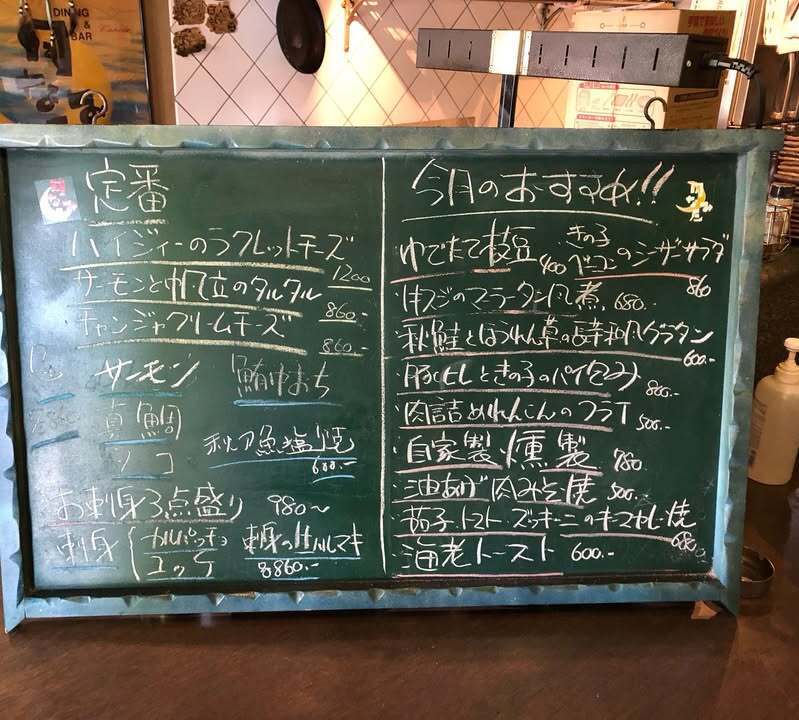 DINING
BAR
定番
ハイジィーのラクレットチーズ
1200
サーモンと帆立のタルタル
860.-
チャンジャクリームチーズ
860.-
サーモン 鮪中おち
真鯛
シコ
秋刀魚塩焼
600.-
お刺身3点盛り 980〜
刺身 カルパッチョ 刺身の生ハルマキ
ユッケ 8860.-
今月のおすすめ!!
ゆでたて枝豆 400
きの子
ベーコンのシーザーサラダ
860
マーラータン風煮 680.-
秋鮭とほうれん草の和風グラタン
600.-
豚ヒレときの子のパイ包み 800.-
肉詰めれんこんのフライ 500.-
自家製燻製 780.
油あげ肉みそ焼 500.
茄子トマトズッキーニの焼
680.
海老トースト 600.-